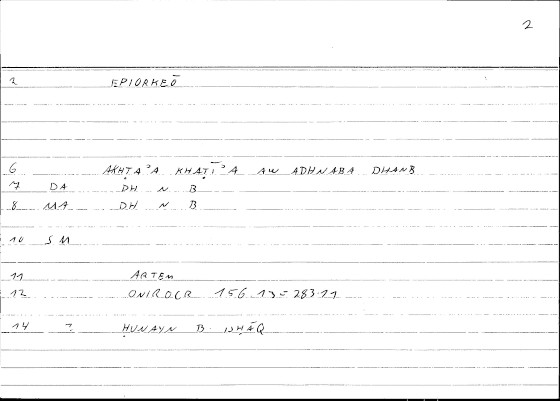 2
2 EPIORKEŌ
6 AKHṬAʾA KHAṬĪʾA AW ADHNABA DHANB
7 DA DH N B
8 MA DH N B
10 SM
11 ARTEM
12 ONIROCR 156.13 = 283.11
14 ? ḤUNAYN B. ISḤĀQ